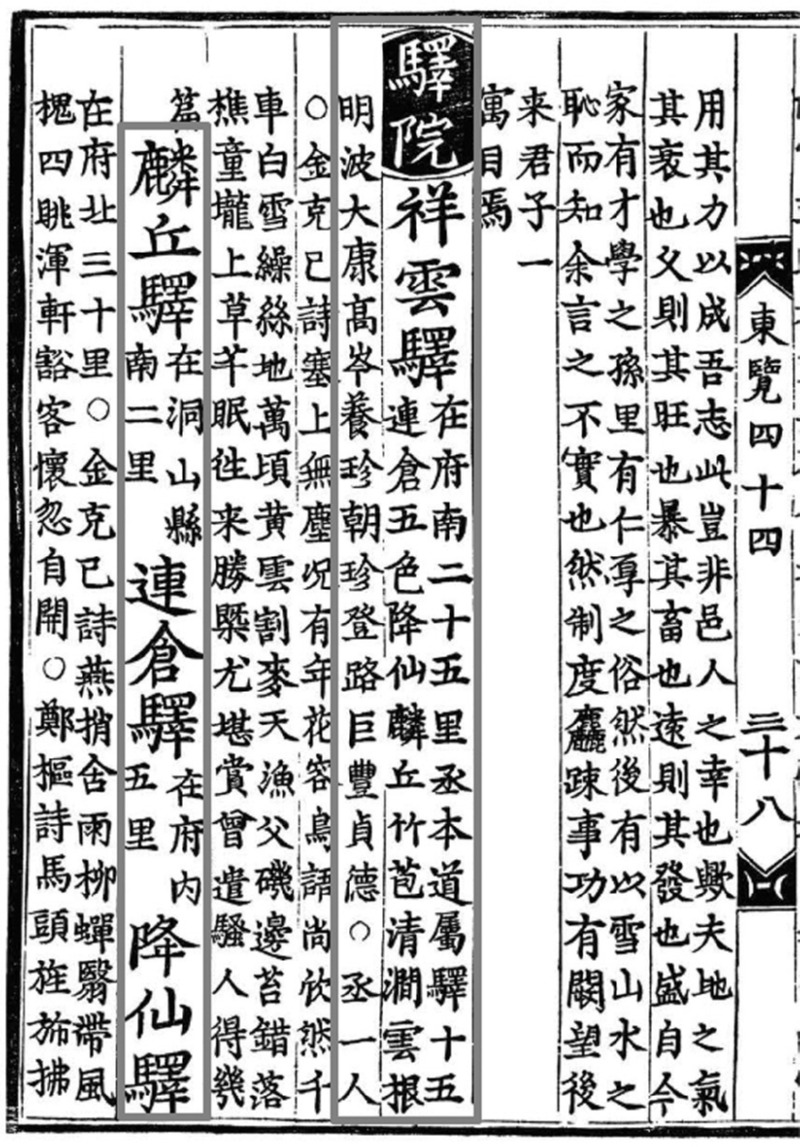 東覽四十四 三十八
用其力以成吾志此豈非邑人之幸也歟夫地之氣
其衰也父則其旺也暴其畜也遠則其發也盛自今
家有才學之孫里有仁厚之俗然後有以雪山水之
恥而知余言之不實也然制度麤踈事功有闕望後
来君子一
寓目焉
驛院
祥雲驛
在府南二十五里丞本道屬驛十五
連倉五色降仙麟丘竹苞清澗雲根
明波大康高岑養珍朝珍登路巨豐貞德○丞一人
○金克己詩塞上無塵況有年花容鳥語尚欣然千
車白雪繰絲地萬頃黃雲割麥天漁父磯邊苔錯落
樵童壠上草芊眠徃来勝槩尤堪賞曾遣騷人得幾
篇
麟丘驛
在洞山縣
南二里
連倉驛
在府內
五里
降仙驛
在府北三十里○金克己詩燕捎舍雨柳蟬翳帶風
槐四眺渾軒豁客懷忽自開○鄭樞詩馬頭旌斾拂